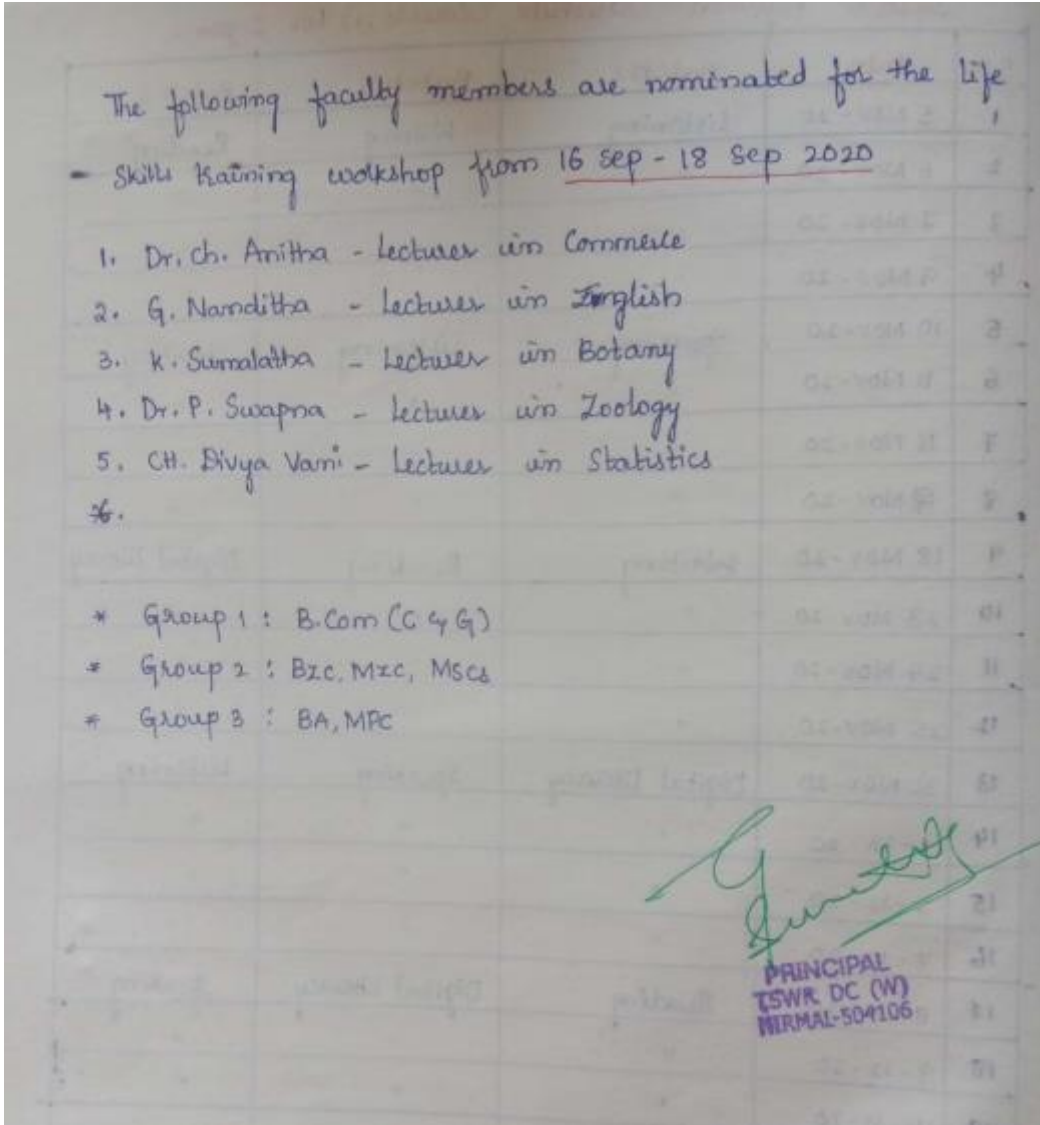 The following faculty members are nominated for the Life
- Skills training workshop from 16 Sep - 18 Sep 2020
1. Dr. Ch. Anitha - Lecturer in Commerce
2. G. Nanditha - Lecturer in English
3. K. Sumalatha - Lecturer in Botany
4. Dr. P. Swapna - Lecturer in Zoology
5. CH. Divya Vani - Lecturer in Statistics
6.
* Group 1 : B.Com (C & G)
* Group 2 : BZC, MZC, MSCs
* Group 3 : BA, MPC
PRINCIPAL
TSWR DC (W)
NIRMAL-504106